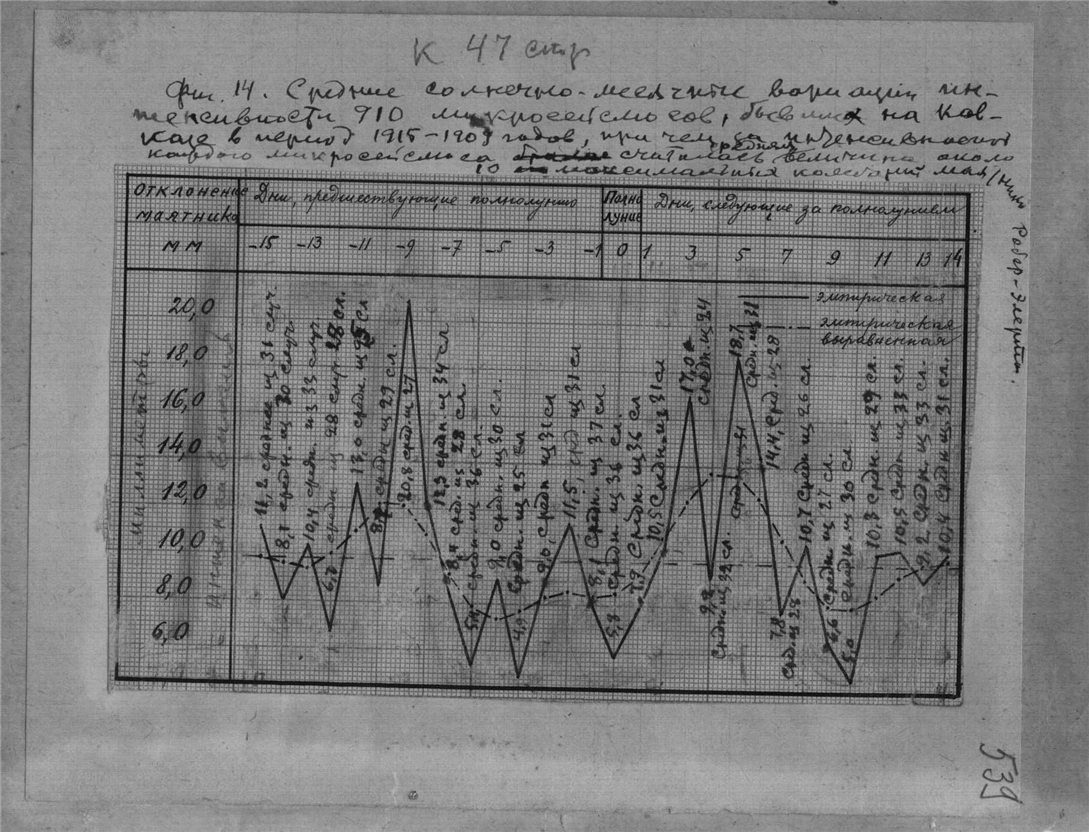 К 47 стр
Фиг. 14. Средние солнечно-месячные вариации ин-
тенсивности 910 микросейсмосов, бывших на Кав-
казе в период 1915-1909 годов, при чем за интенсивность
средняя
каждого микросейсмоса считалась величина около
10 максимальных колебаний маятника
Робер-Элерта.
Отклонение маятника
мм
Дни, предшествующие полнолунию
Полнолуние
Дни, следующие за полнолунием
-15 -13 -11 -9 -7 -5 -3 -1 0 1 3 5 7 9 11 13 14
эмпирическая
эмпирическая
выравненная
миллиметры
20,0
18,0
16,0
14,0
12,0
10,0
8,0
6,0
11,2 среднее из 31 случ.
8,1 средн. из 30 случ.
10,4 средн. из 33 случ
средн из 28 случ 28 сл.
13,0 средн. из сл
средн из 29 сл.
20,8 сред. из 27
12,3 средн. из 34 сл
8,4 сред. из 28 сл.
средн из 36 сл.
9,0 средн. из 30 сл.
4,9 средн. из 25 сл
9,0, средн из 31 сл
11,5, сред из 31 сл
8,1 Средн. из 37 сл.
5,8 средн из 36 сл.
7,9 Средн. из 36 сл
10,5 Средн. из 31 сл
17,0
Средн. из 24
Средн из 32 сл.
18,7
средн. из 31
14,4, Сред. из 28
7,8
сред. из 28
10,7 Средн из 26 сл.
6,6 Средн из 27 сл.
5,0 средн. из 30 сл
10,3 средн. из 29 сл.
10,5 Средн из 33 сл.
9,2 Средн. из 33 сл.
10,4 средн из 31 сл.
539